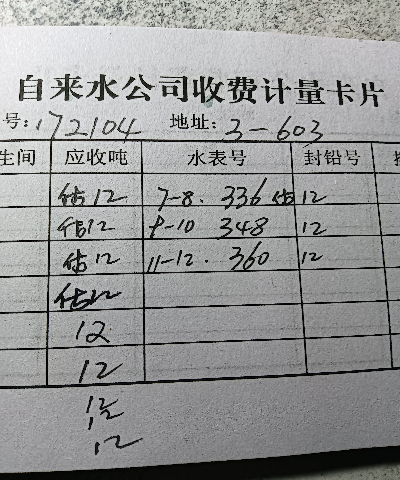 自来水公司收费计量卡片
号:172104 地址:3-603
生间 应收吨 水表号 封铅号
估12 7-8. 336 估 12
估12 9-10 348 12
估12 11-12. 360 12
估12
12
12
12
12